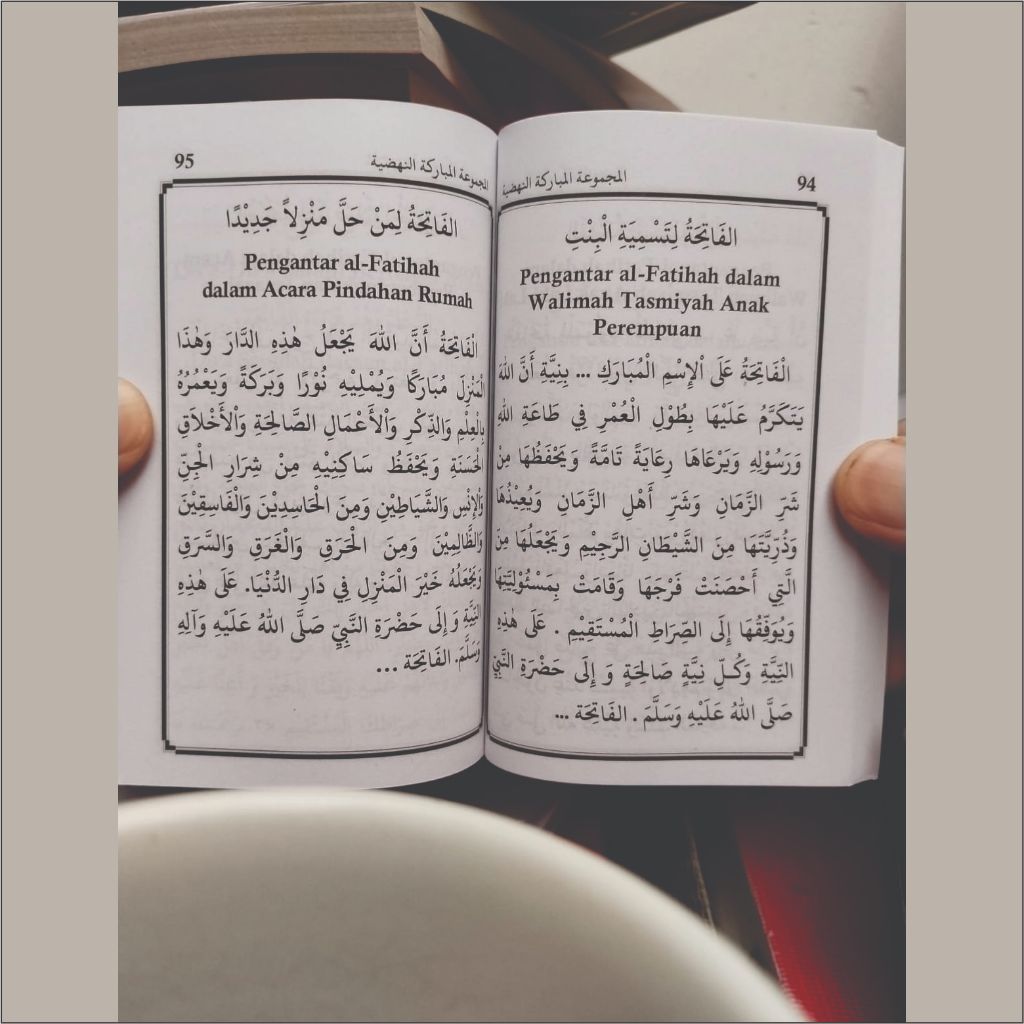 المجموعة المباركة النهضية
94
الفَاتِحَةُ لِتَسْمِيَةِ الْبِنْتِ
Pengantar al-Fatihah dalam
Walimah Tasmiyah Anak
Perempuan
الْفَاتِحَةُ عَلَى اْلإِسْمِ الْمُبَارَكِ ... بِنِيَّةِ أَنَّ اللهَ
يَتَكَرَّمُ عَلَيْهَا بِطُوْلِ الْعُمْرِ فِي طَاعَةِ اللهِ
وَرَسُوْلِهِ وَيَرْعَاهَا رِعَايَةً تَامَّةً وَيَحْفَظُهَا مِنْ
شَرِّ الزَّمَانِ وَشَرِّ أَهْلِ الزَّمَانِ وَيُعِيْذُهَا
وَذُرِّيَّتَهَا مِنَ الشَّيْطَانِ الرَّجِيْمِ وَيَجْعَلُهَا مِنَ
الَّتِي أَحْصَنَتْ فَرْجَهَا وَقَامَتْ بِمَسْئُوْلِيَّتِهَا
وَيُوَفِّقُهَا إِلَى الصِّرَاطِ الْمُسْتَقِيْمِ . عَلَى هٰذِهِ
النِّيَّةِ وَكُلِّ نِيَّةٍ صَالِحَةٍ وَ إِلَى حَضْرَةِ النَّبِيِّ
صَلَّى اللهُ عَلَيْهِ وَسَلَّمَ . الفَاتِحَة ...
المجموعة المباركة النهضية
95
الفَاتِحَةُ لِمَنْ حَلَّ مَنْزِلاً جَدِيْدًا
Pengantar al-Fatihah
dalam Acara Pindahan Rumah
الْفَاتِحَةُ أَنَّ اللهَ يَجْعَلُ هٰذِهِ الدَّارَ وَهٰذَا
الْمَنْزِلَ مُبَارَكًا وَيُمْلِيْهِ نُوْرًا وَبَرَكَةً وَيَعْمُرُهُ
بِالْعِلْمِ وَالذِّكْرِ وَاْلأَعْمَالِ الصَّالِحَةِ وَاْلأَخْلَاقِ
الْحَسَنَةِ وَيَحْفَظُ سَاكِنِيْهِ مِنْ شِرَارِ الْجِنِّ
وَاْلإِنْسِ وَالشَّيَاطِيْنِ وَمِنَ الْحَاسِدِيْنَ وَالْفَاسِقِيْنَ
وَالظَّالِمِيْنَ وَمِنَ الْحَرَقِ وَالْغَرَقِ وَالسَّرَقِ
وَيَجْعَلُهُ خَيْرَ الْمَنْزِلِ فِي دَارِ الدُّنْيَا. عَلَى هٰذِهِ
النِّيَّةِ وَ إِلَى حَضْرَةِ النَّبِيِّ صَلَّى اللهُ عَلَيْهِ وَآلِهِ
وَسَلَّمَ. الفَاتِحَة ...